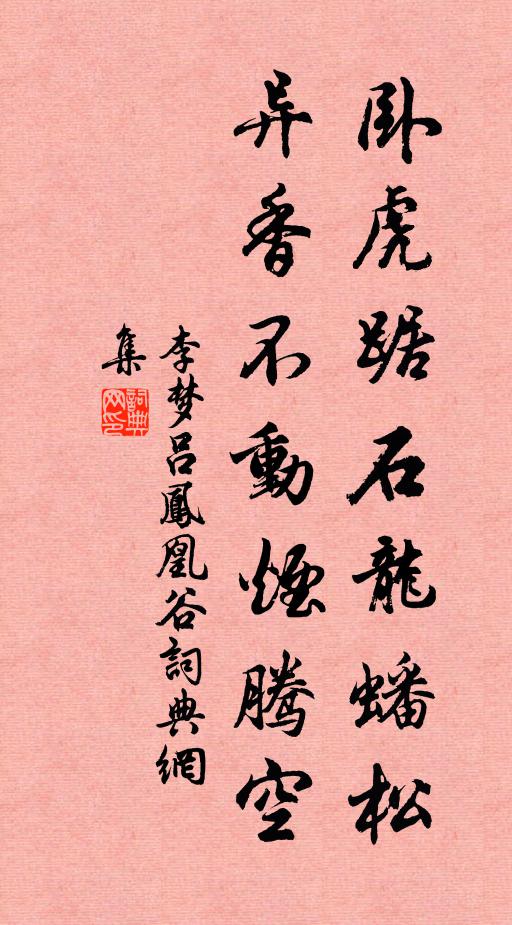 卧虎踞石龍蟠松
异香不動煙腾空
李梦吕鳳凰谷詞典網
集
詞典网印